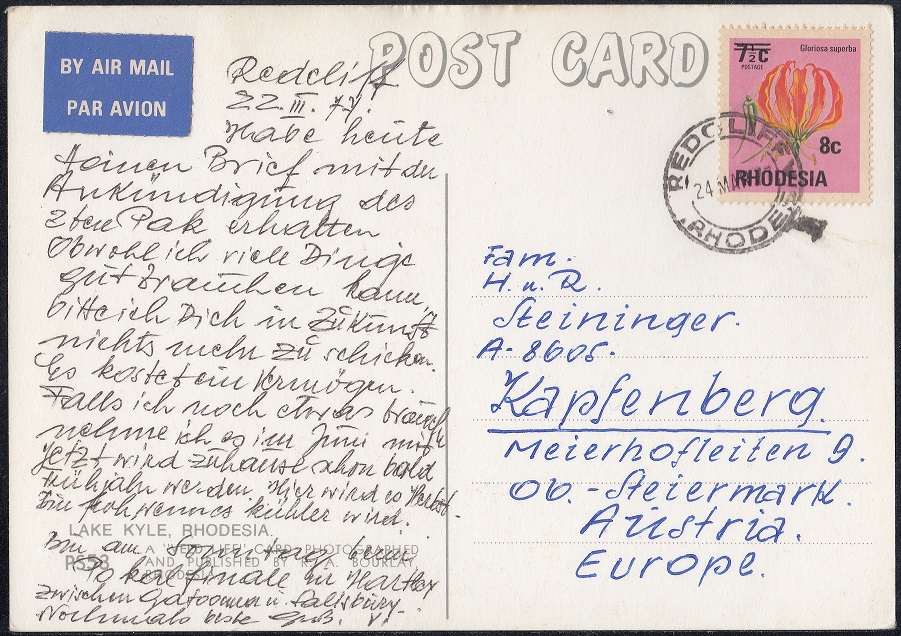 BY AIR MAIL
PAR AVION
POST CARD
7½c
POSTAGE
Gloriosa superba
8c
RHODESIA
REDCLIFF
24 MAR
RHODE
Redcliff
22.III.77.
Habe heute
Deinen Brief mit der
Ankündigung des
2ten Pak erhalten
Obwohl ich viele Dinge
gut brauchen kann,
bitte ich Dich in Zukunft
nichts mehr zu schicken.
Es kostet ein Vermögen.
Falls ich noch etwas brauch
nehme ich es im Juni mit
Jetzt wird zuhause schon bald
Frühjahr werden. Hier wird es Herbst.
Bin froh wenn es kühler wird.
Bin am Sonntag beim
Pokalfinale in Hartley
zwischen Gatooma u. Salisbury.
Nochmals beste Grüß.
LAKE KYLE, RHODESIA.
PS53
CARD PHOTOGRAPHED
AND PUBLISHED BY R. A. BOURLAY,
Fam.
H. u. R.
Steininger.
A-8605.
Kapfenberg.
Meierhofleiten 9.
Ob.-Steiermark.
Austria.
Europe.